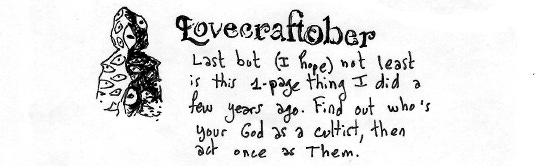 Lovecraftober
Last but (I hope) not least
is this 1-page thing I did a
few years ago. Find out who's
your God as a cultist, then
act once as Them.